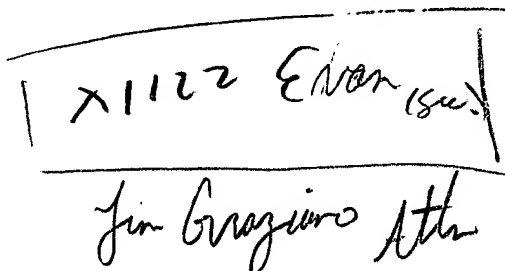 X1122 Evan (sec.)
Jim Graziano Attn